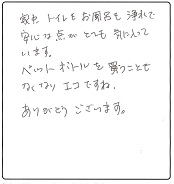 飲水 トイレも お風呂も 浄水で
安心な点が とても 気に入って
います。
ペットボトルを 買うことも
なくなり エコですね。
ありがとう ございます。